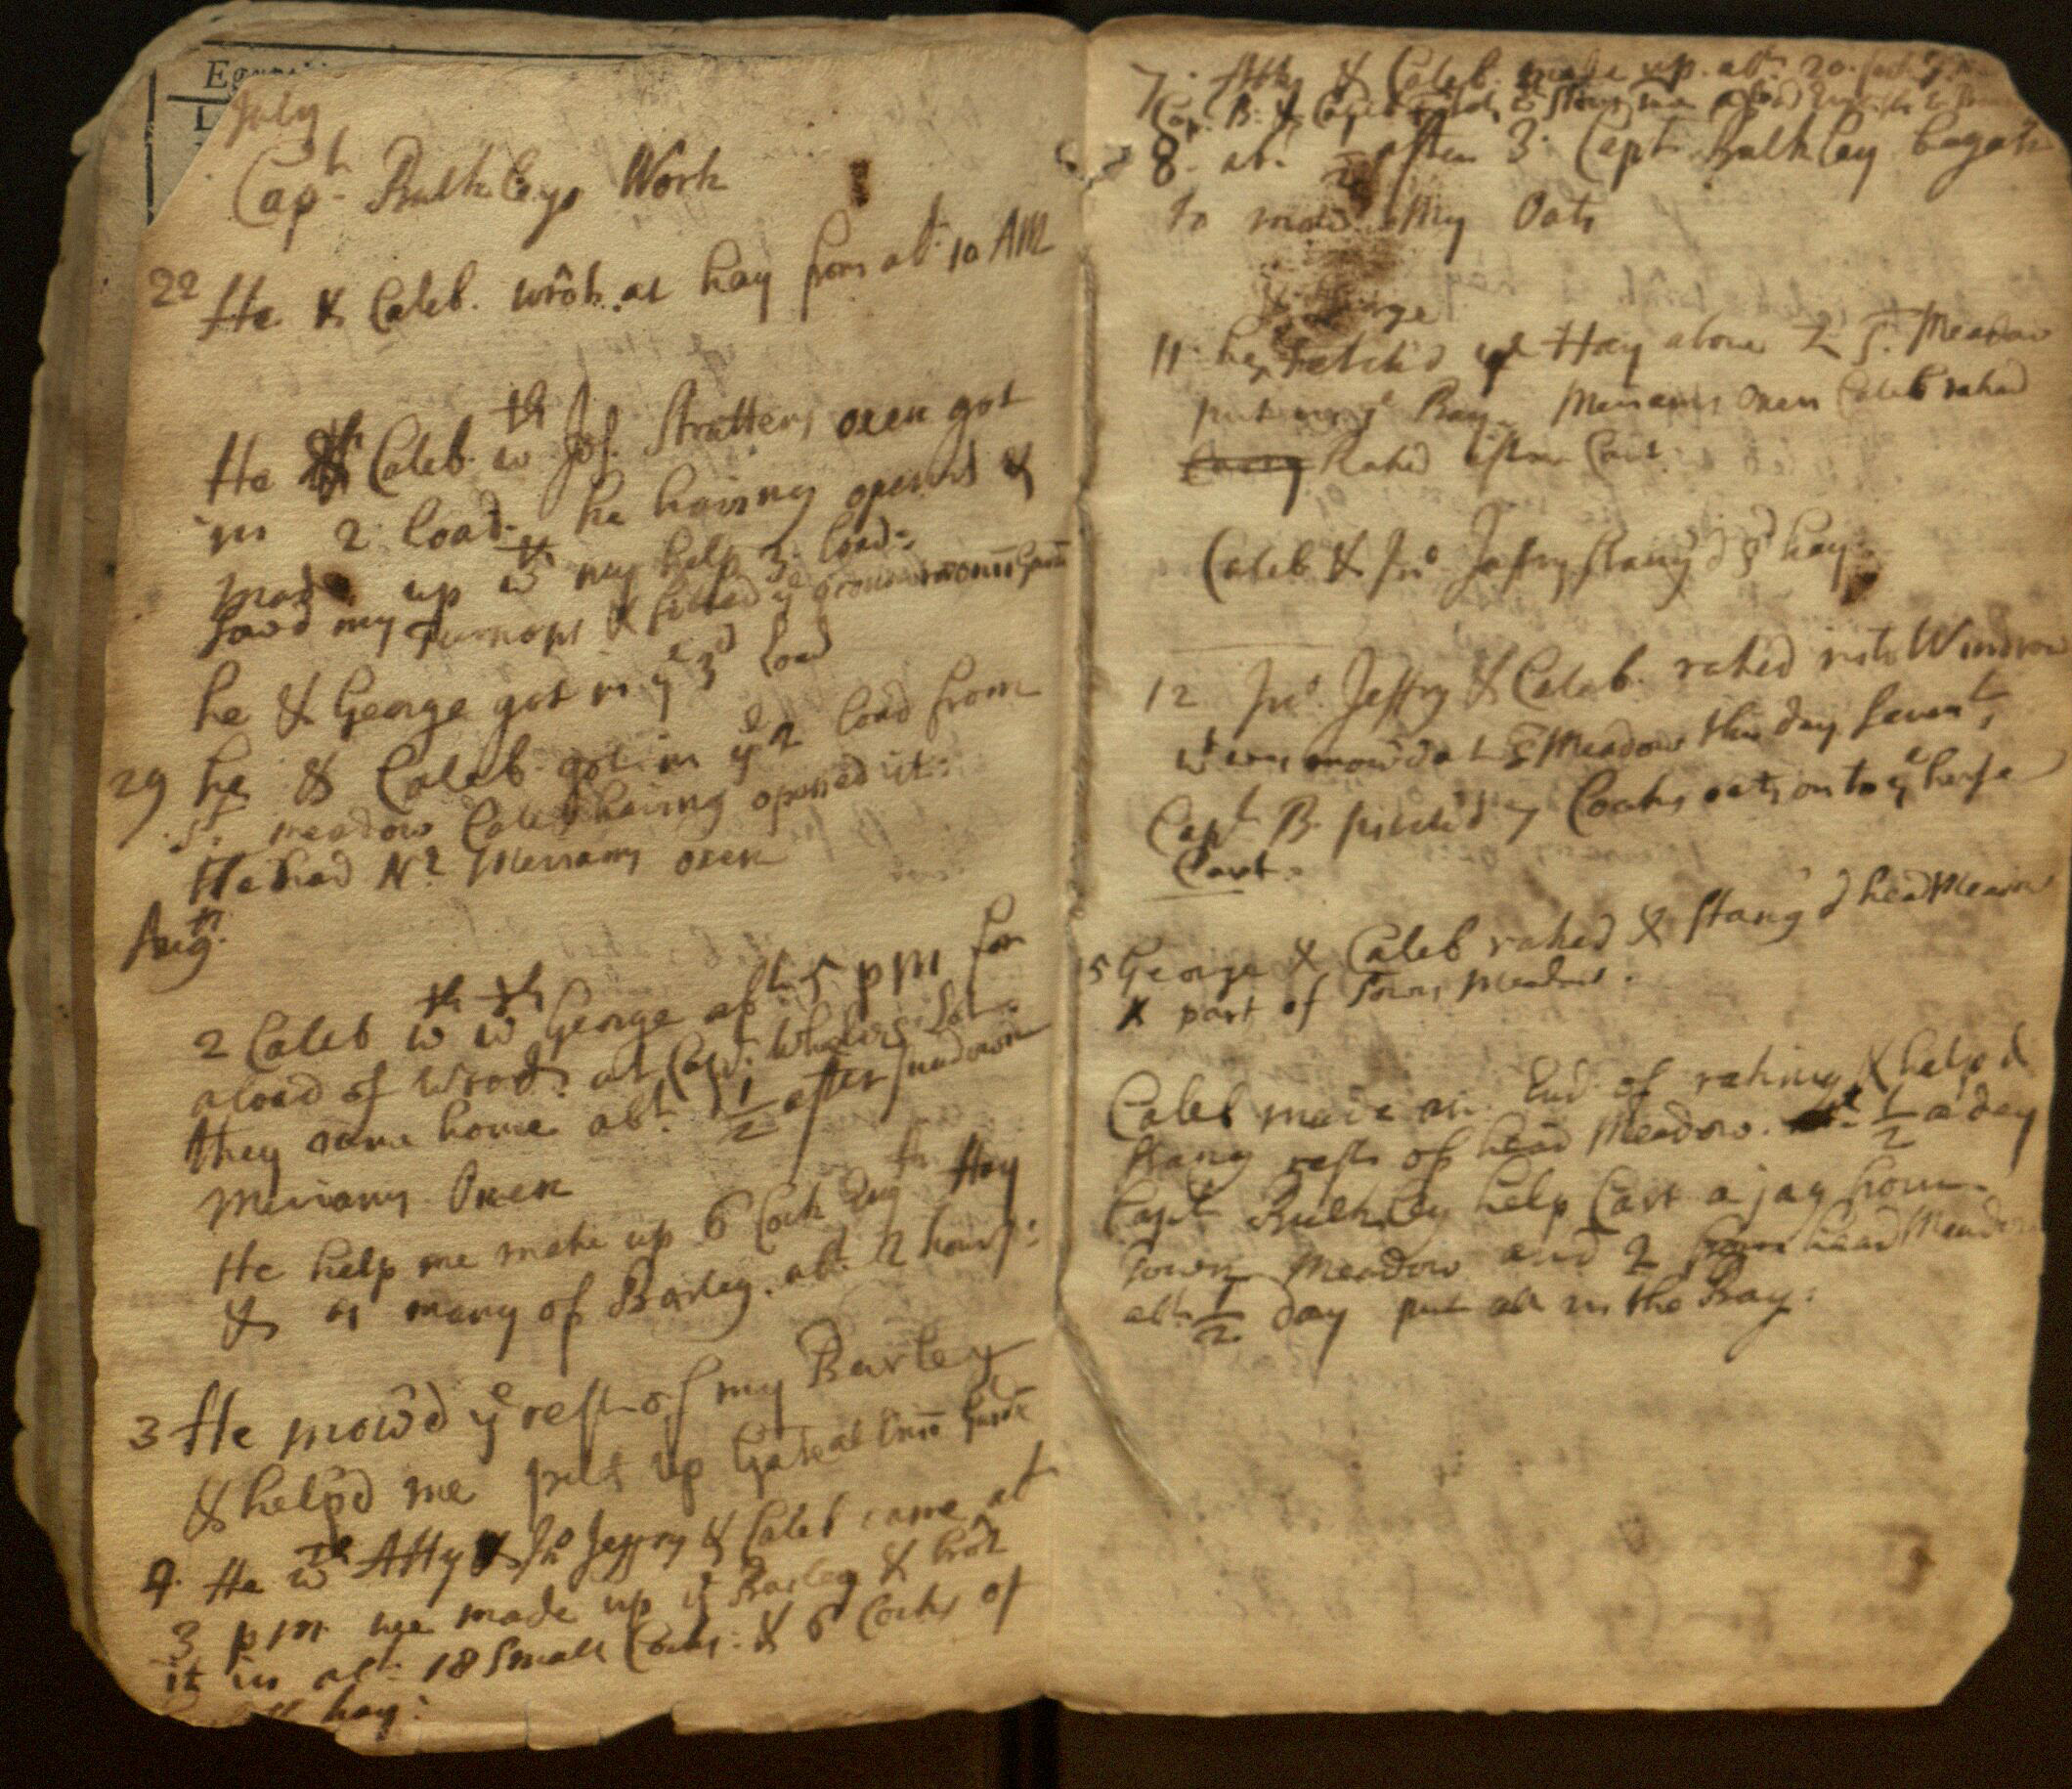 July
Capt Bulkleys Work
22 He & Caleb. wrôt. at hay from abt 10 AM
He Caleb wth Jos. Strattens oxen got
in 2 load. he having opened &
made up wth my help 3 load:
sow'd my Turnops &
he & George got in ye 3d load
29 he & Caleb got in ye 2 load from
meadow Caleb having opened it:
He had Merriams oxen
Aug.
2 Caleb wth wth George abt 5 pm for
a load of Wood at Capt. Whelers Lot:
they came home abt. 1/2 after sundown
Merriams Oxen
He help me make up 6 Cock Eng Hay
& as many of Barley. abt 2 hours:
3 He mow'd ye rest of my Barley
& help'd me up Gate at
4. He wth Atty & Jno Jeffry & Caleb came at
3 pm we made up ye Barley & brôt
it in abt 18 Small Cocks: & 6 Cocks of
hay:
7. & Caleb made up abt 20
Cap. B. &
8. abt 1/2 after 3. Capt Bulkley began
to mow My Oats
& George
11 he, fetch'd ye Hay above Meadow
put in ye Bay. Merriams Oxen Caleb raked
Raked after Cart.
Caleb & Jno Jeffry stang'd hay.
12 Jno. Jeffry & Caleb. raked into Windrow
wt was mow'd at Meadow this day
Capt B. pitch'd 7 Cocks oats on to ye horse
Cart.
15 George & Caleb raked & Stang'd head Meadow
& part of Town Meadow.
Caleb made an End of raking & help'd
Stang rest of head Meadow. 1/2 a day
Capt Bulkley help Cart a jag from
Town Meadow and 2 from head Meadow
abt 1/2 day put all in the Bay: